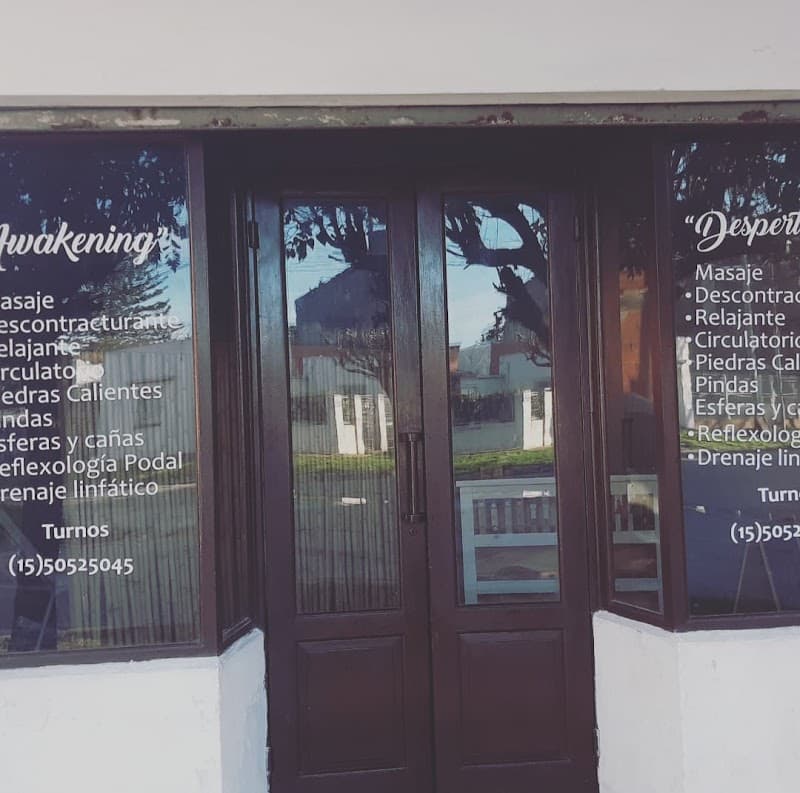 Awakening"
asaje
escontracturante
elajante
irculatorio
iedras Calientes
indas
sferas y cañas
eflexología Podal
renaje linfático
Turnos
(15)50525045
"Despert
Masaje
• Descontrac
• Relajante
• Circulatorio
• Piedras Cal
Pindas
Esferas y c
• Reflexolog
• Drenaje lin
Turn
(15)5052